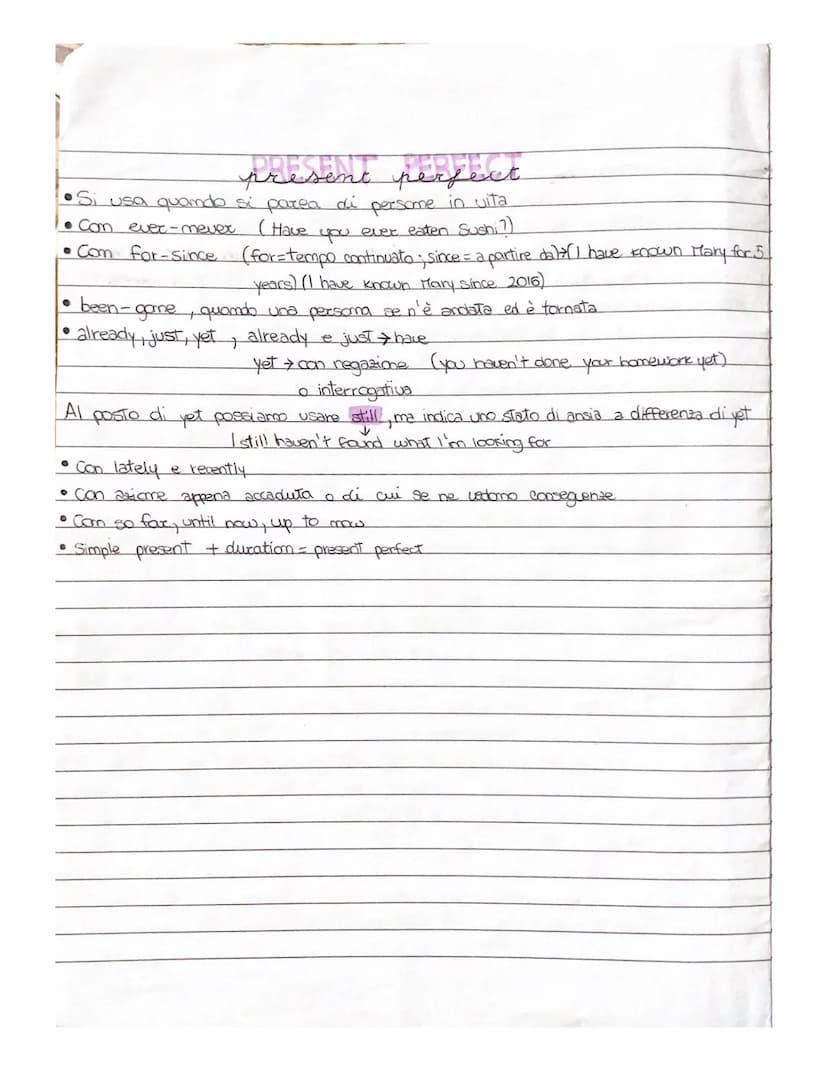 PRESENT PERFECT
present perfect
• Si usa quando si parla di persone in vita
• Con ever-never (Have you ever eaten Sushi?)
• Con for-since (for=tempo continuato; since= a partire da)→(I have known Mary for 5
years) (I have known Mary since 2016)
• been-gone, quando una persona se n'è andata ed è tornata
• already, just, yet, already e just → have
yet → con negazione (you haven't done your homework yet)
o interrogativa
Al posto di yet possiamo usare still, ma indica uno stato di ansia a differenza di yet
↓
I still haven't found what I'm looking for
• Con lately e recently
• Con azione appena accaduta o di cui se ne vedono conseguenze
• Con so far, until now, up to now
• Simple present + duration = present perfect